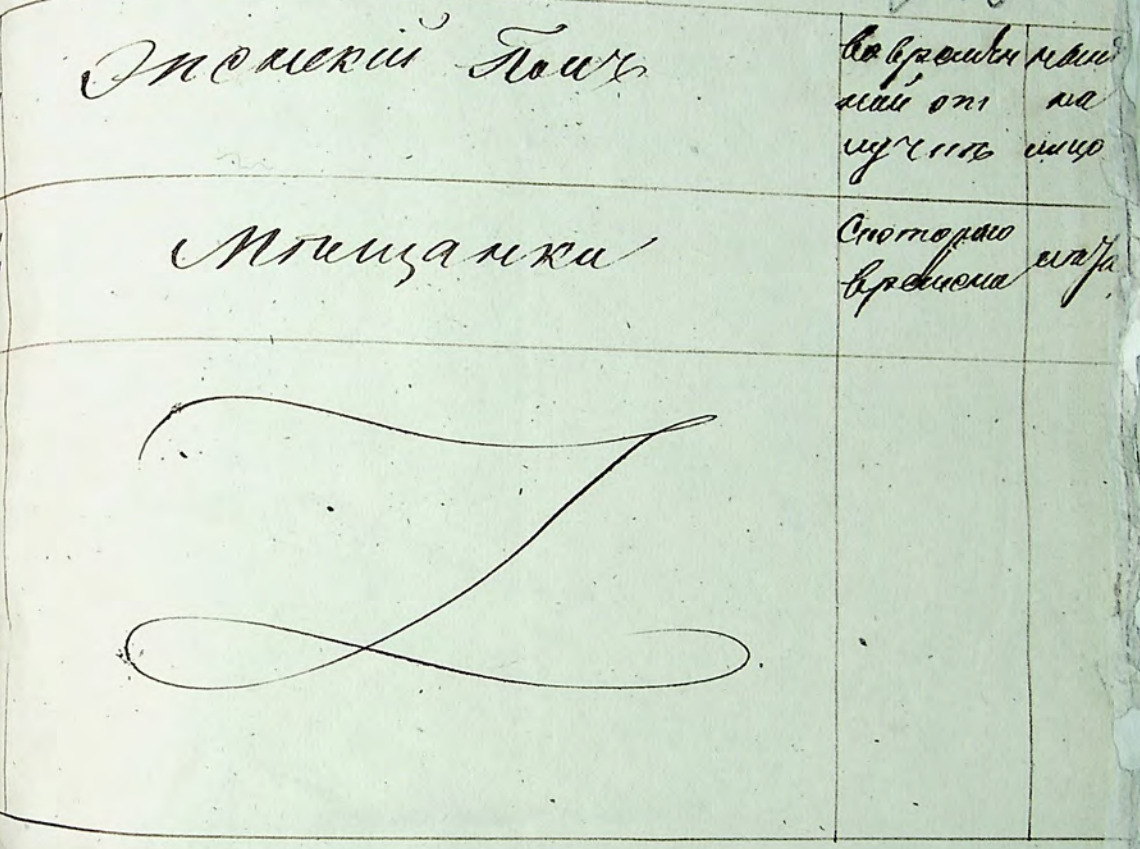 Женскій Полъ
во времѣн
ной от
лучкѣ
нынѣ
на
лицо
Мѣщанки
Скотораго
времени
лѣта